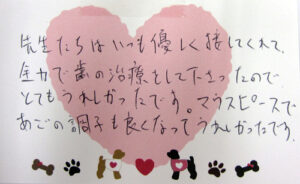 先生たちはいつも優しく接してくれて、
全力で歯の治療をして下さったので
とてもうれしかったです。マウスピースで
あごの調子も良くなってうれしかったです。